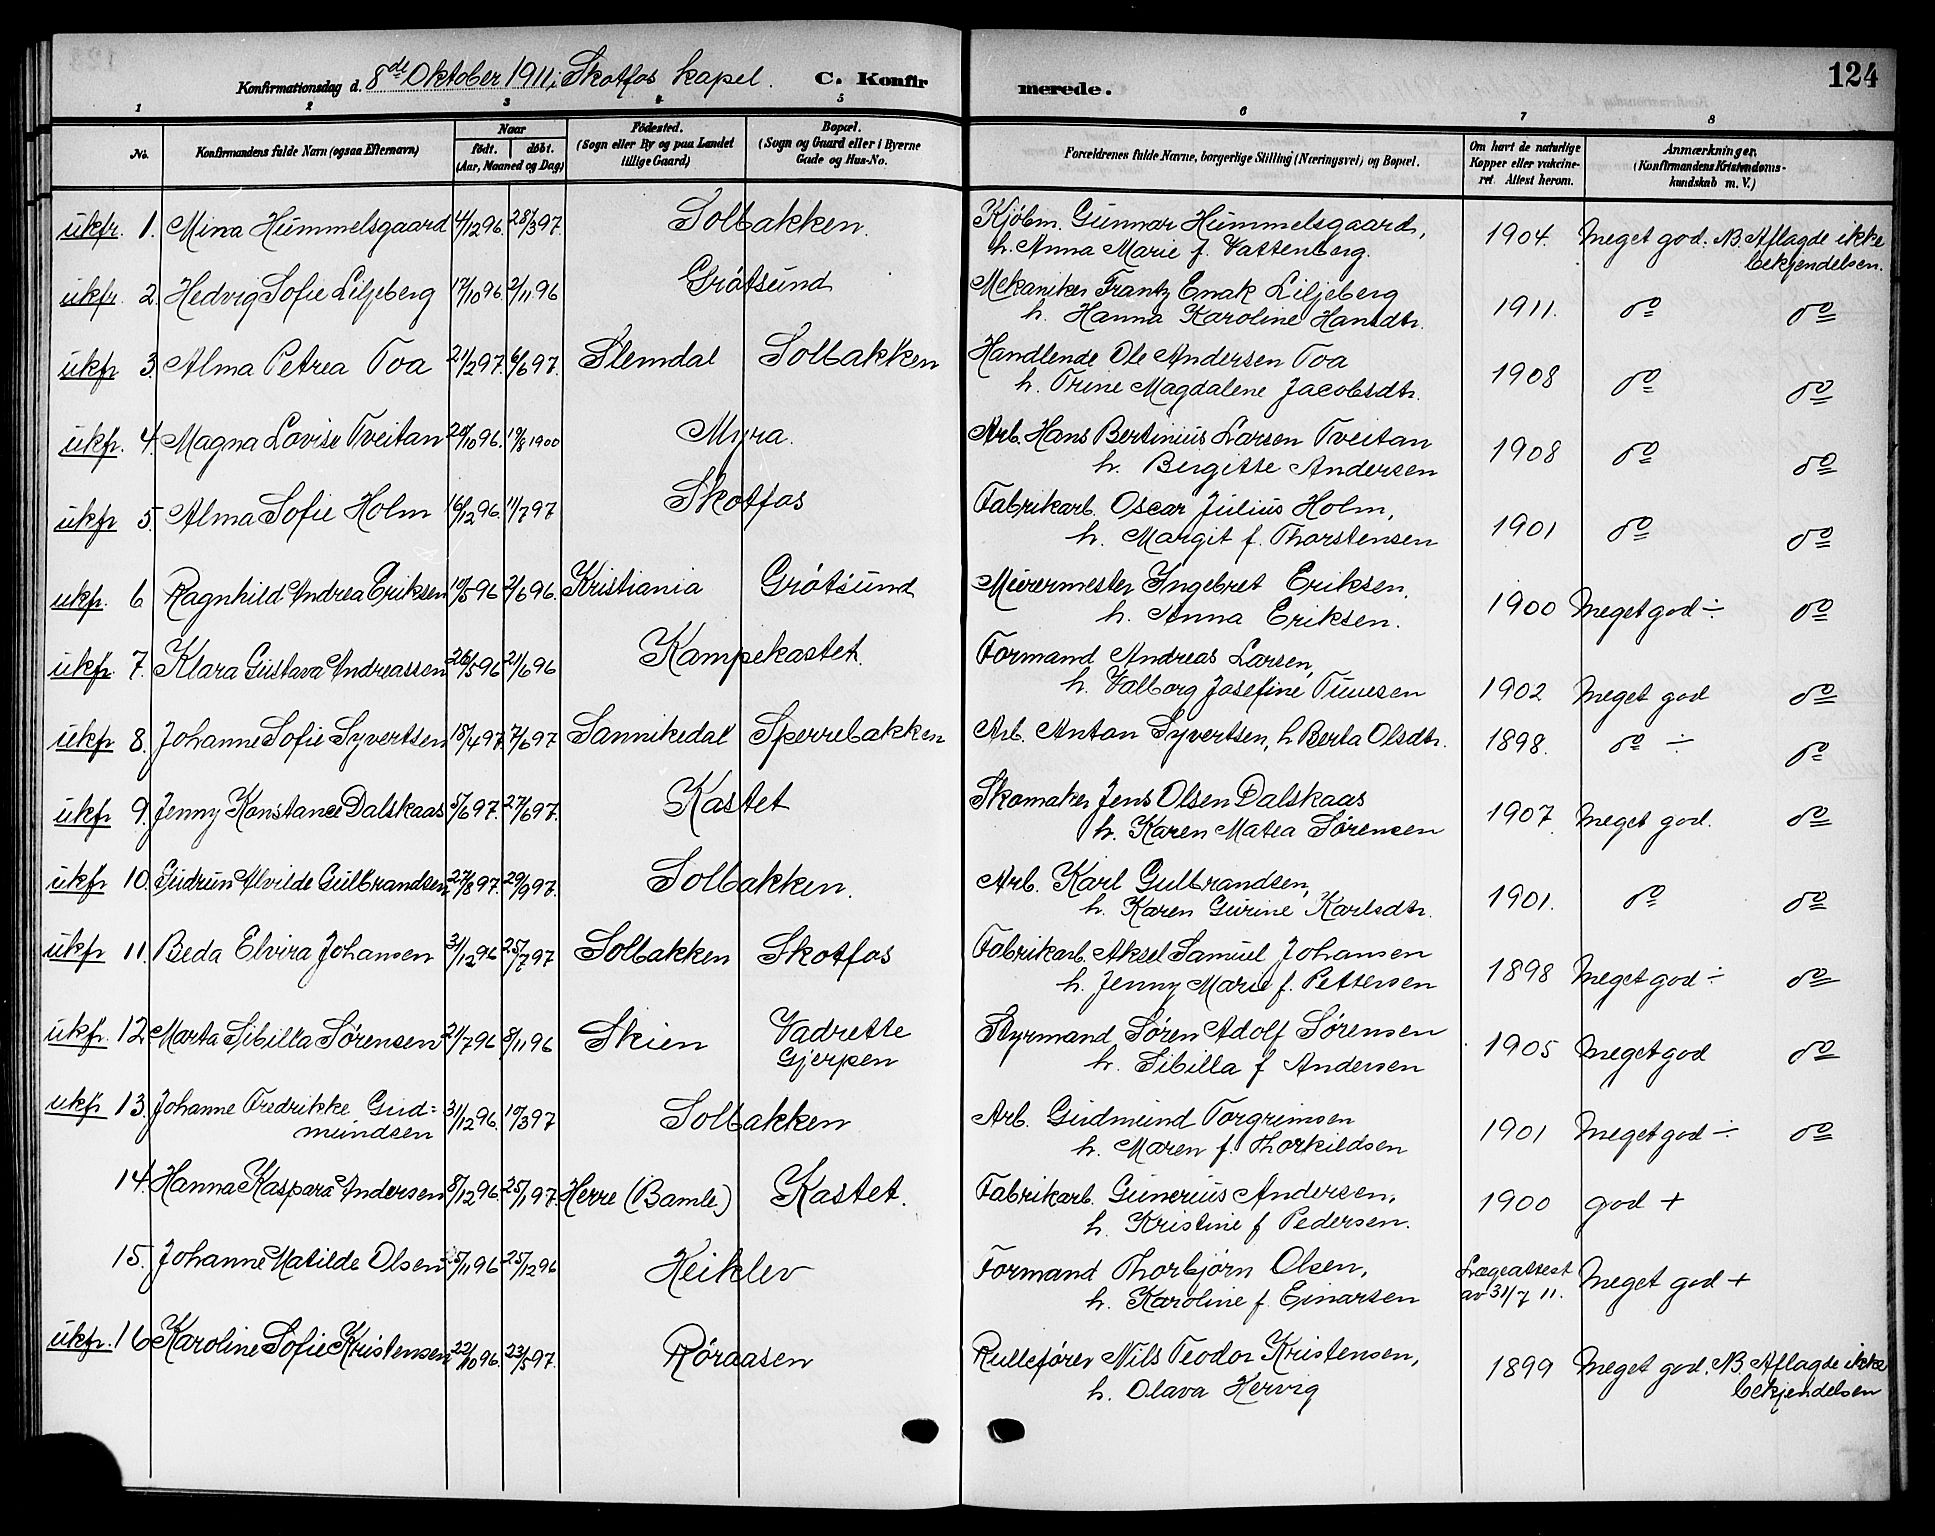 Konfirmationsdag d. 8de Oktober 1911, i Skotfos kapel. C. Konfir merede. 124
1 2 3 4 5 6 7 8
No. Konfirmandens fulde Navn (ogsaa Efternavn) Naar født. døbt. (Aar, Maaned og Dag) Fødested. (Sogn eller By og paa Landet tillige Gaard) Bopæl. (Sogn og Gaard eller i Byerne Gade og Hus-No. Forældrenes fulde Navne, borgerlige Stilling (Næringsvei) og Bopæl. Om havt de naturlige Kopper eller vakcineret. Attest herom. Anmærkninger. (Konfirmandens Kristendomskundskab m. V.)
ukfr. 1. Mina Hummelsgaard 4/12 96. 28/3 97. Solbakken. Kjøbm. Gunnar Hummelsgaard, 1904. Meget god. NB. Aflagde ikke
h. Anna Marie f. Vattenberg. bekjendelsen.
ukfr. 2. Hedvig Sofie Liljeberg 17/10 96. 2/11 96 Grøtsund Mekaniker Frantz Enak Liljeberg 1911. do do
h. Hanna Karoline Hansdtr.
ukfr 3. Alma Petrea Toa 21/2 97. 6/6 97. Slemdal Solbakken Handlende Ole Andersen Toa 1908 do do
h. Trine Magdalene Jacobsdtr.
ukfr. 4. Magna Lovise Tveitan 20/10 96. 19/8 1900 Myra. Arb. Hans Bertinius Larsen Tveitan 1908 do do
h. Birgitte Andersen
ukfr 5. Alma Sofie Holm 16/12 96. 11/7 97 Skotfos Fabrikarb. Oscar Julius Holm, 1901 do do
h. Margit f. Thorstensen
ukfr. 6 Ragnhild Andrea Eriksen 10/5 96 2/6 96. Kristiania Grøtsund Murermester Ingebret Eriksen. 1900 Meget god ÷ do
h. Anna Eriksen.
ukfr. 7. Klara Gustava Andreassen 26/5 96 21/6 96 Kampekastet. Formand Andreas Larsen, 1902 Meget god do
h. Valborg Josefine Tuvesen
ukfr 8. Johanne Sofie Syvertsen 18/4 97. 7/6 97 Sannikedal Sperrebakken Arb. Anton Syvertsen, h. Berta Olsdtr. 1898. do ÷ do
ukfr 9. Jenny Konstance Dalskaas 5/6 97. 27/6 97. Kastet Skomaker Jens Olsen Dalskaas 1907 Meget god. do
h. Karen Matea Sørensen
ukfr 10. Gudrun Alvilde Gulbrandsen 27/8 97. 29/9 97. Solbakken. Arb. Karl Gulbrandsen, 1901. do do
h. Karen Gurine Karlsdtr.
ukfr 11. Beda Elvira Johansen 31/12 96 25/7 97 Solbakken Skotfos Fabrikarb. Aksel Samuel Johansen 1898 Meget god ÷ do
h. Jenny Marie f. Pettersen
ukfr. 12 Marta Sibilla Sørensen 21/7 96 8/11 96 Skien Vadrette Styrmand Søren Adolf Sørensen 1905 Meget god do
Gjerpen h. Sibilla f Andersen
ukfr 13. Johanne Fredrikke Gud= 31/12 96. 19/3 97 Solbakken Arb. Gudmund Torgrimsen 1901 Meget god ÷ do
mundsen h. Maren f. Thorkildsen
14. Hanna Kaspara Andersen 8/12 96. 25/1 97. Herre (Bamle.) Kastet. Fabrikarb. Gunerius Andersen, 1900 god +
h. Kristine f Pedersen.
15. Johanne Matilde Olsen 5/11 96 25/12 96 Heiklev Formand Thorbjørn Olsen, Lægeattest Meget god +
h. Karoline f. Einarsen av 31/7 11.
ukfr. 16 Karoline Sofie Kristensen 22/10 96. 23/5 97. Røraasen Rullefører Nils Teodor Kristensen, 1899 Meget god. NB Aflagde ikke
h. Olava Hervig bekjendelsen